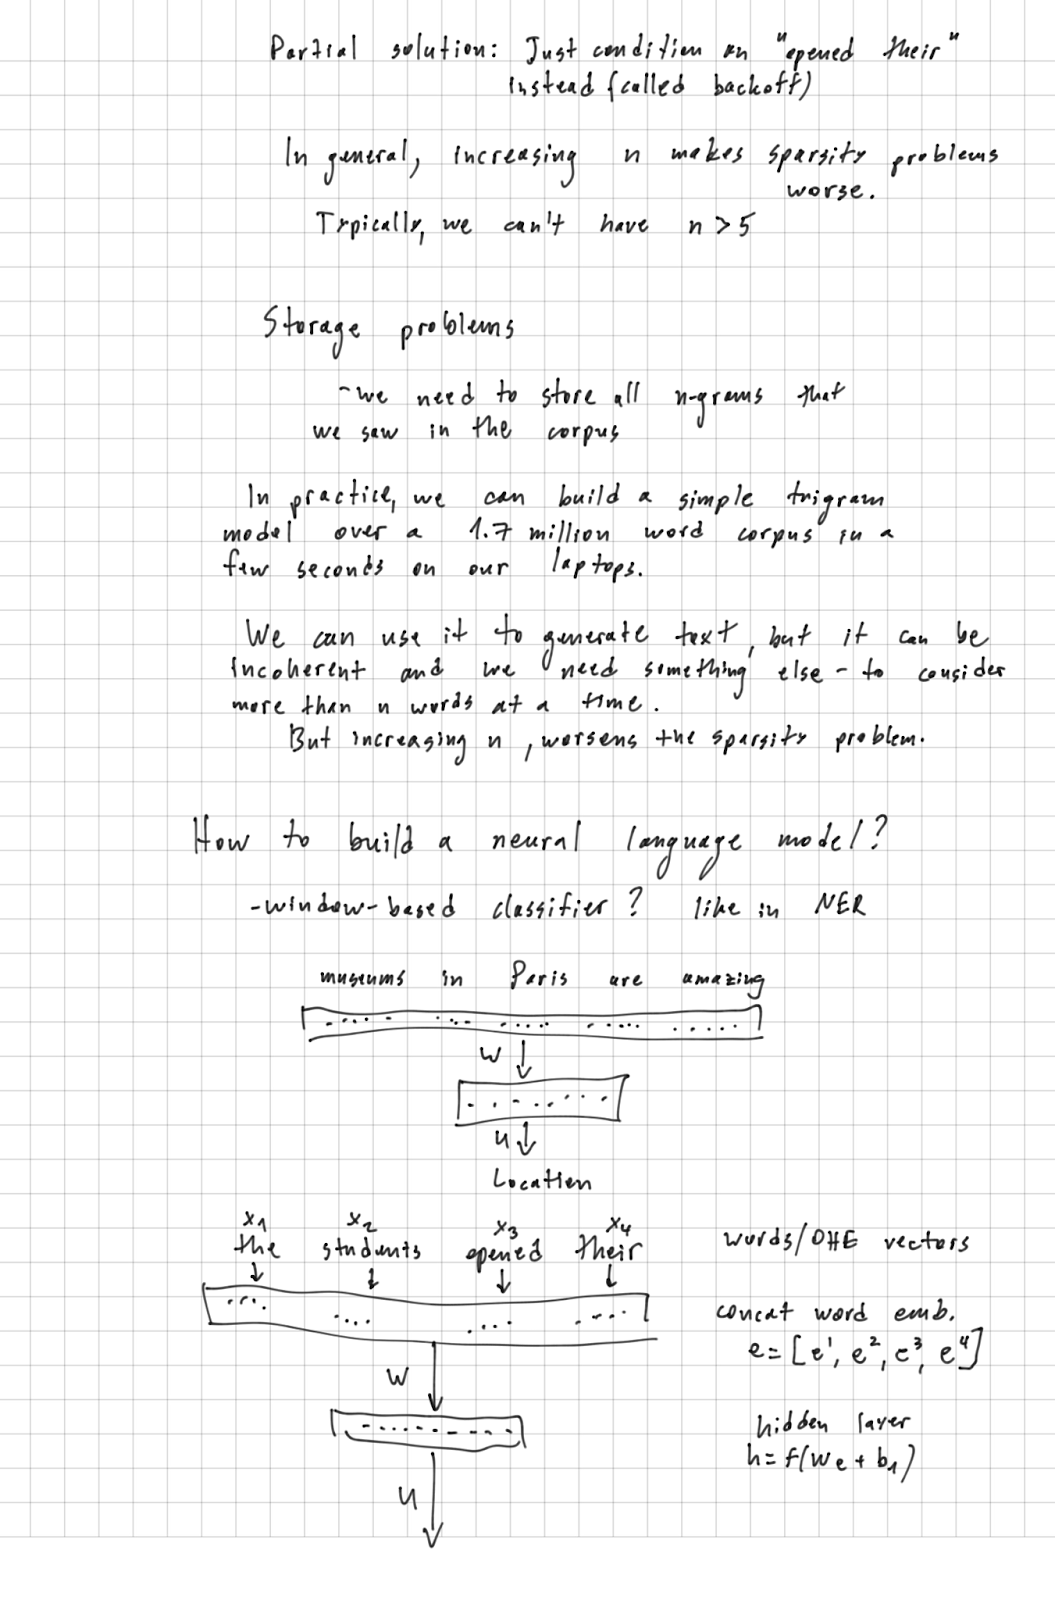 Partial solution: Just condition on "opened their"
instead (called backoff)
In general, increasing n makes sparsity problems
worse.
Typically, we can't have n > 5
Storage problems
- we need to store all n-grams that
we saw in the corpus
In practice, we can build a simple trigram
model over a 1.7 million word corpus in a
few seconds on our laptops.
We can use it to generate text, but it can be
incoherent and we need something else - to consider
more than n words at a time.
But increasing n, worsens the sparsity problem.
How to build a neural language model?
- window-based classifier? like in NER
museums in Paris are amazing
W
U
Location
x₁ x₂ x₃ x₄
the students opened their words/OHE vectors
concat word emb.
e = [e¹, e², e³, e⁴]
W
hidden layer
h = f(We + b₁)
U